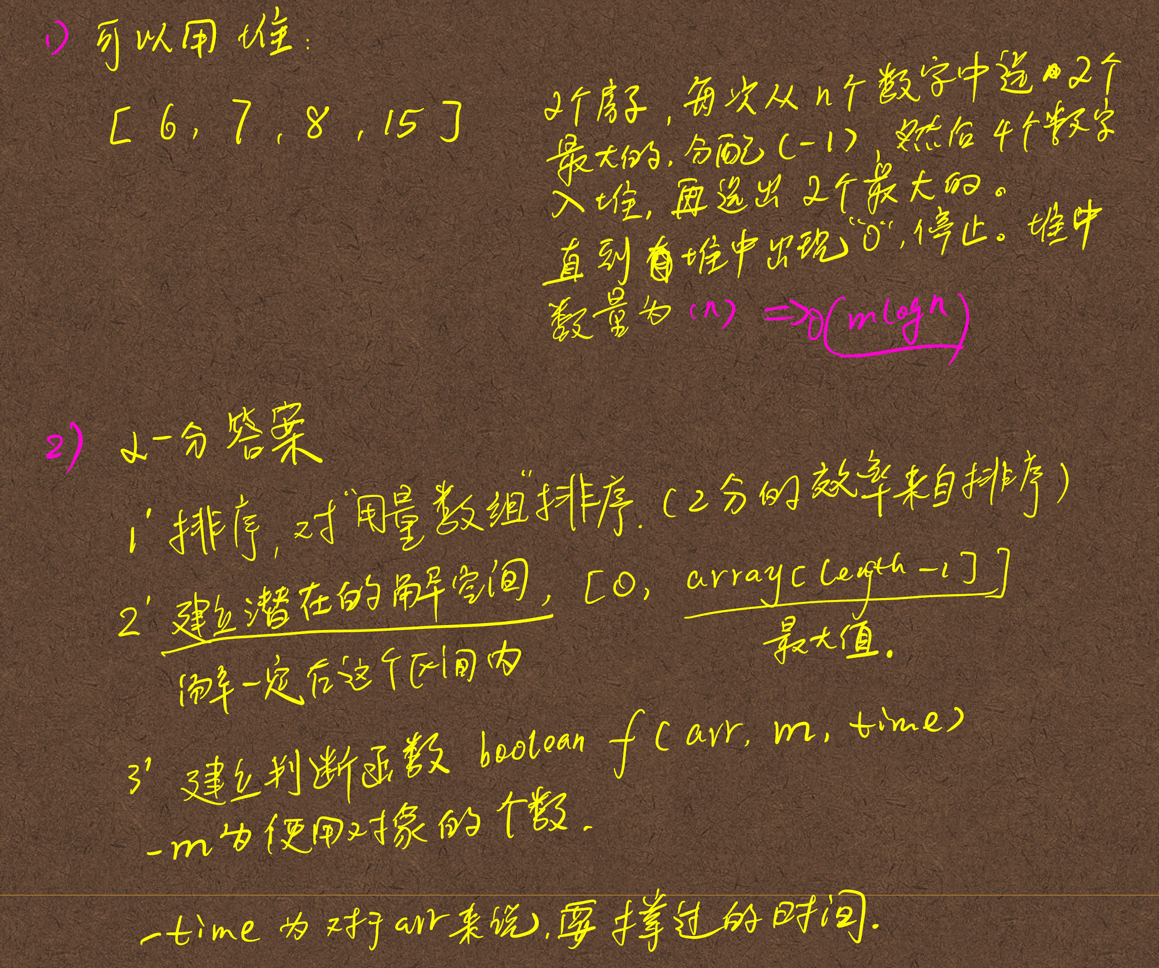 1) 可以用堆:
[ 6, 7, 8, 15 ]
2个房子, 每次从n个数字中选2个
最大的, 分配(-1), 然后4个数字
入堆, 再选出2个最大的。
直到堆中出现"0", 停止。堆中
数量为 (n) => O(mlogn)
2) 二分答案
1' 排序, 对"用量数组"排序. (2分的效率来自排序)
2' 建立潜在的解空间, [0, array[length-1]]
最大值.
解一定在这个区间内
3' 建立判断函数 boolean f(arr, m, time)
-m为使用对象的个数.
-time 为对于arr来说, 要撑过的时间.